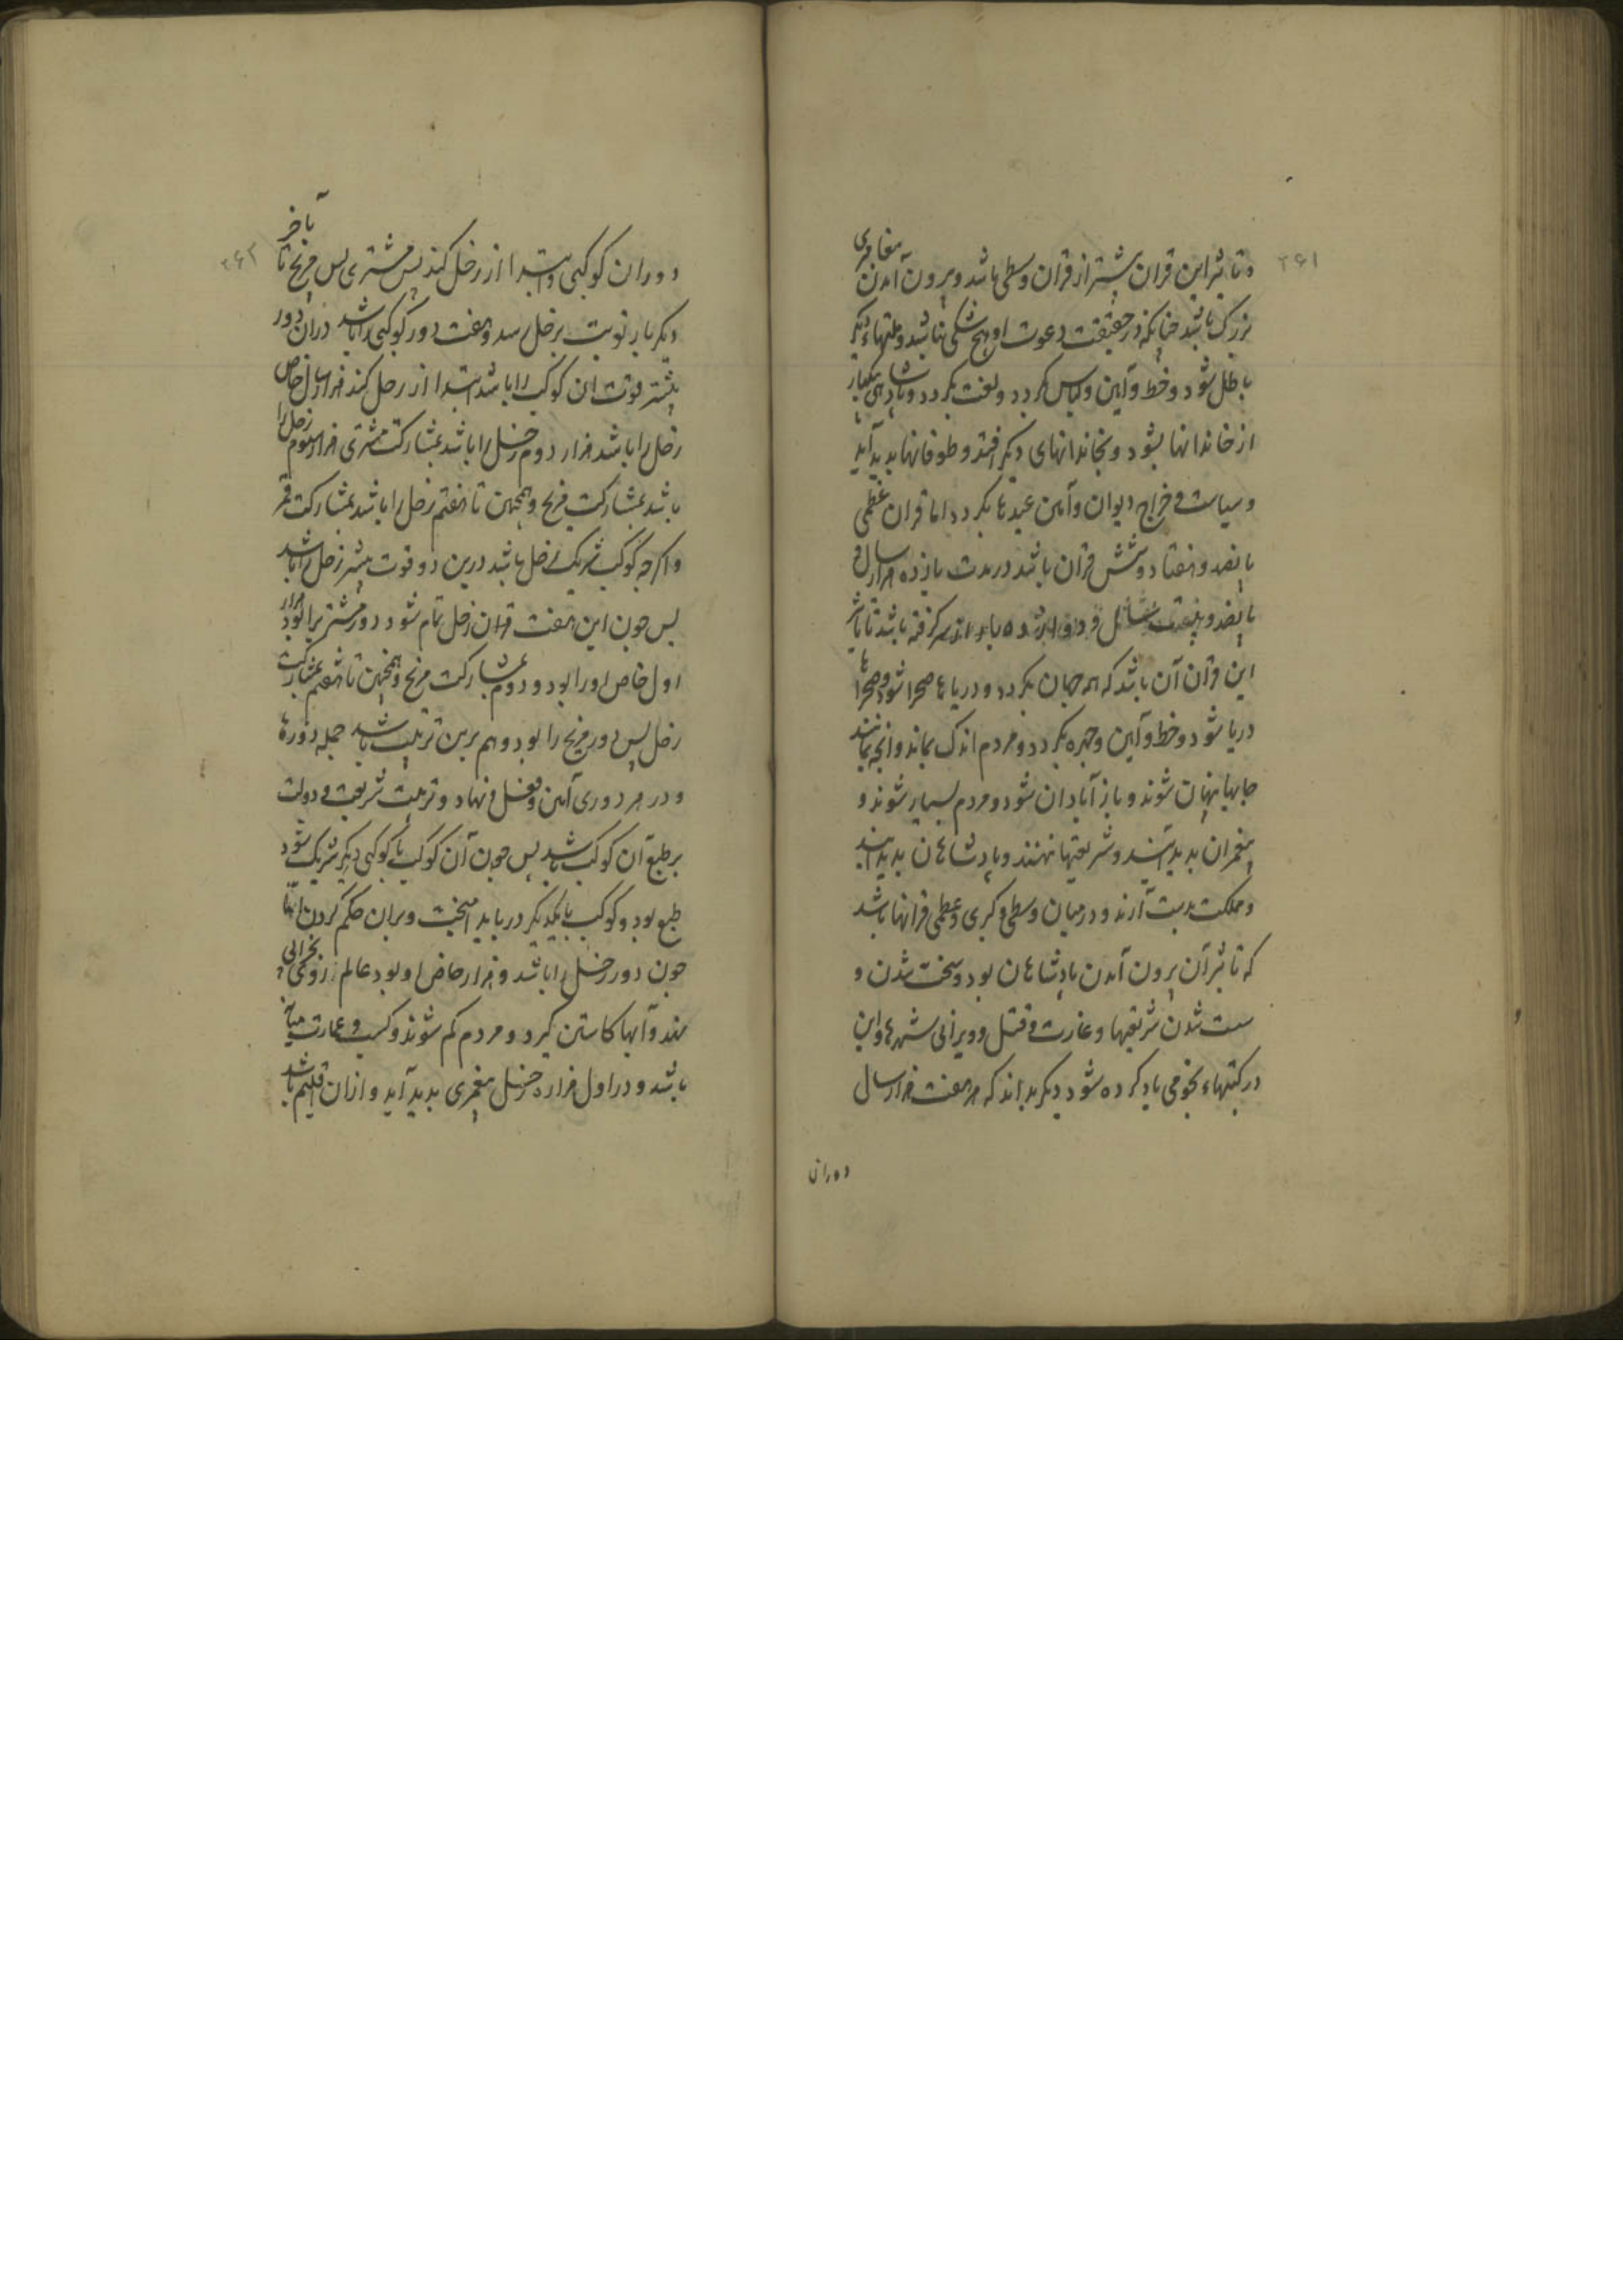 ۳۶۱
و تاثیر این قران بیشتر از قران وسطی باشد و بیرون آمدن
بزرک باشد چنانکه در حقیقت دعوت او هیچ شکی نباشد و ملتهاء دیکر
باطل شود و خط و آیین و لباس بکردد و لغت بکردد و پادشاهی یکبار
از خاندانها بشود و بخاندانهای دیکر افتد و طوفانها پدید آید
و سیاست و خراج دیوان و آیین عیدها بکردد اما قران عظمی
پانصد و هفتاد و شش قران باشد در مدت یازده هزار سال و
پانصد و سال و باشد تا تاثیر
این قران آن باشد که همه جهان بکردد و دریاها صحرا شود و صحراها
دریا شود و خط و آیین و چهره بکردد و مردم اندک بماند و آنچه بمانند
جایها پنهان شوند و باز آبادان شود و مردم بسیار شوند و
پیغمبران پدید آیند و شریعتها نهند و پادشاهان پدید آیند
و مملکت بدست آرند و در میان وسطی و کبری و عظمی قرانها باشد
که تاثیر آن برون آمدن پادشاهان بود و سخت شدن و
سست شدن شریعتها و غارت و قتل و ویرانی شهرها و این
در کتبهاء نجومی یاد کرده شود دیکر بداند که هر هفت هزار سال
دوران
۳۶۲
دوران کوکبی و ابتدا از زحل کند پس مشتری پس مریخ تا بآخر
دیکر بار نوبت بزحل رسد و هفت دور کوکبی را باشد دران دور
بیشتر قوت آن کوکب را باشد ابتدا از زحل کند هزار سال اول خاص
زحل را باشد هزار دوم زحل را باشد بمشارکت مشتری هزار سوم زحل را
باشد بمشارکت مریخ و همچنین تا هفتم زحل را باشد بمشارکت قمر
و اکرچه کوکب شریک زحل باشد درین دو قوت بیشتر زحل را باشد
پس چون این هفت قران زحل تمام شود دور مشتری را بود هزار
اول خاص او را بود و دوم بمشارکت مریخ و همچنین تا هفتم بمشارکت
زحل پس دور مریخ را بود و هم برین ترتیب باشد جمله دورها
و در هر دوری آیین و فعل و نهاد و تربیت شریعت و دولت
بر طبع آن کوکب باشد پس چون آن کوکب با کوکبی دیکر شریک شود
طبع بود و کوکب با یکدیکر در باید آمیخت و بران حکم کردن
چون دور زحل را باشد و هزار خاص او بود عالم روی بخرابی
نهد و آبها کاستن کیرد و مردم کم شوند و کسب و عمارت
باشد و در اول هزاره زحل پیغمبری پدید آید و ازان اقلیم باشد